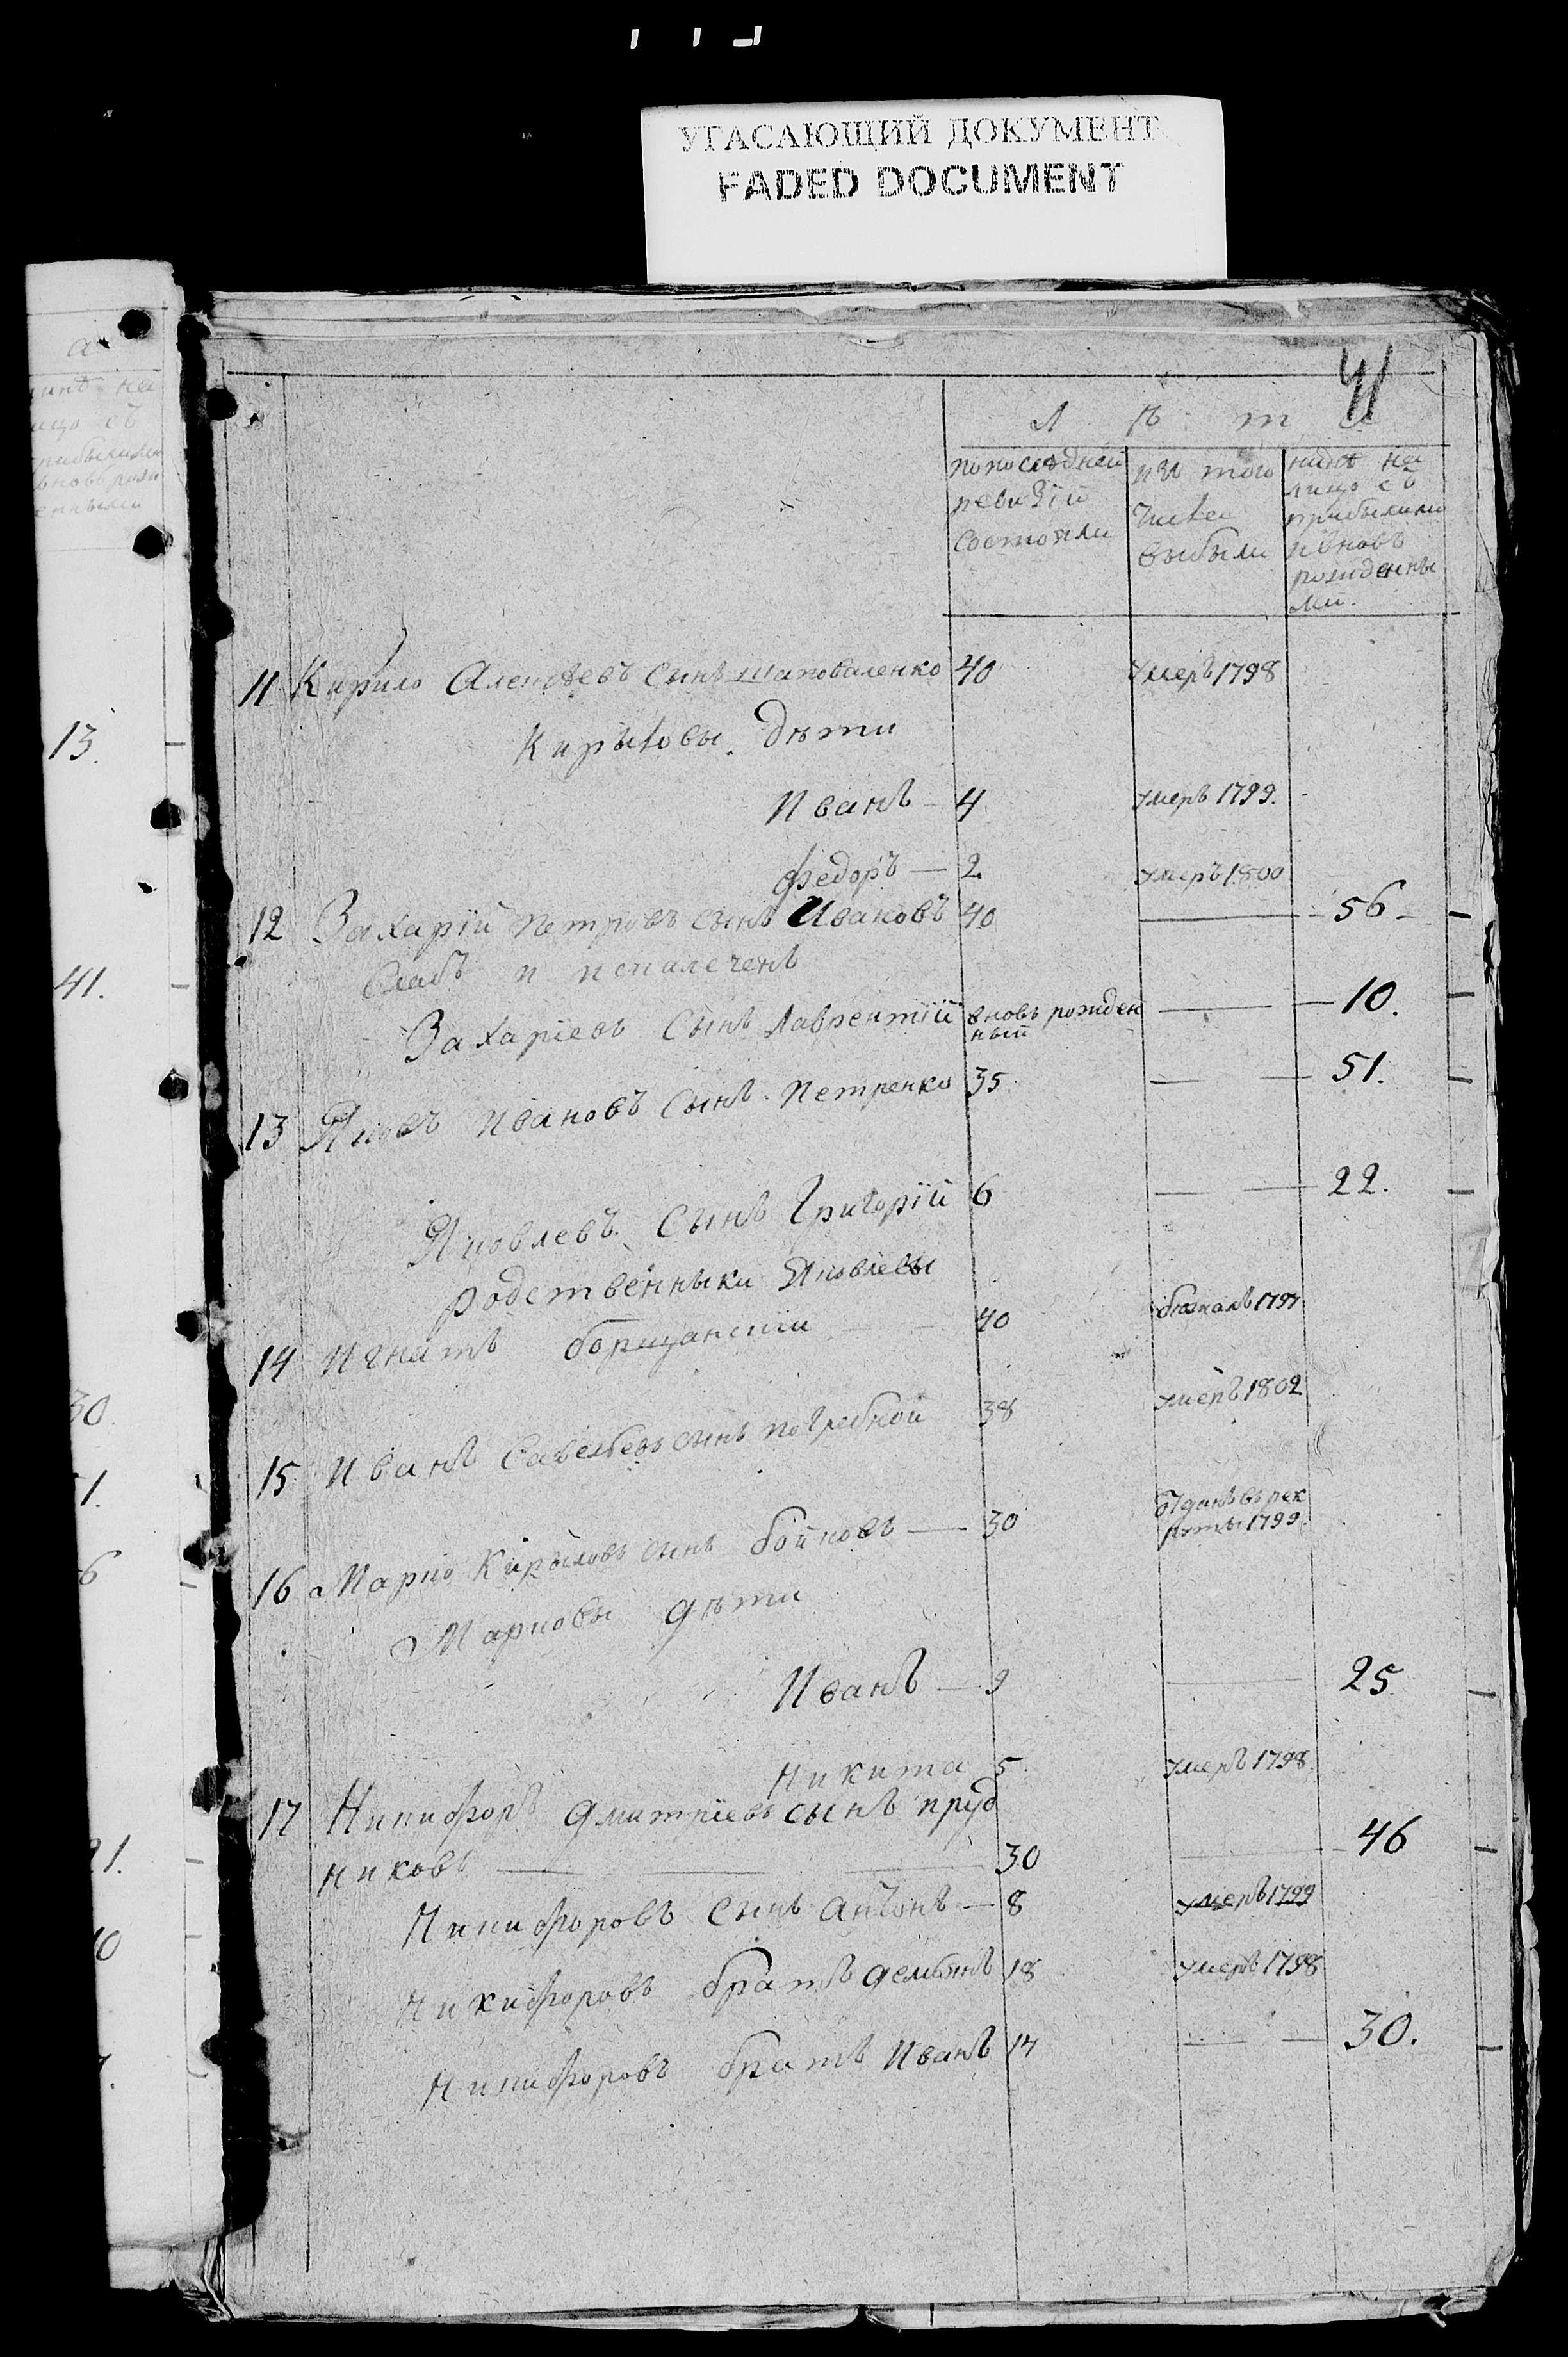 УГАСАЮЩИЙ ДОКУМЕНТ
FADED DOCUMENT
41
Л ѣ т а
попоследней ревизїи состояли
изъ того числа выбыли
ныне на лицо съ прибылыми и вновь рожденны ми.
11 Кирило Алексеевъ сынъ шаповаленко 40 умеръ 1798
Кирыловы дѣти
Иванъ — 4 умеръ 1799.
федоръ — 2 умеръ 1800
12 Захарїй петровъ сынъ Ивановъ 40 — 56
Слабъ и искалеченъ
Захарїевъ Сынъ Лаврентїй вновь рожден ный — 10.
13 Яковъ Ивановъ Сынъ Петренко 35 — 51.
Яковлевъ Сынъ Григорїй 6 — 22.
Родственники Яковлевы
14 Игнатъ борщанскїи 40 бежалъ 1797
15 Иванъ Савельевъ сынъ погребной 38 умеръ 1802
16 Марко Кирыловъ сынъ бойковъ — 30 Отданъ въ рек руты 1799.
Марковы дѣти
Иванъ — 9 — 25
Никита 5 умеръ 1798.
17 Никифоръ дмитрїевъ сынъ пруд
никовъ — 30 — 46
Никифоровъ Сынъ антонъ — 8 умеръ 1799
Никифоровъ братъ демьянъ 18 умеръ 1798
Никифоровъ братъ Иванъ 14 — 30.
13.
41.
30.
1.
6
21.
10